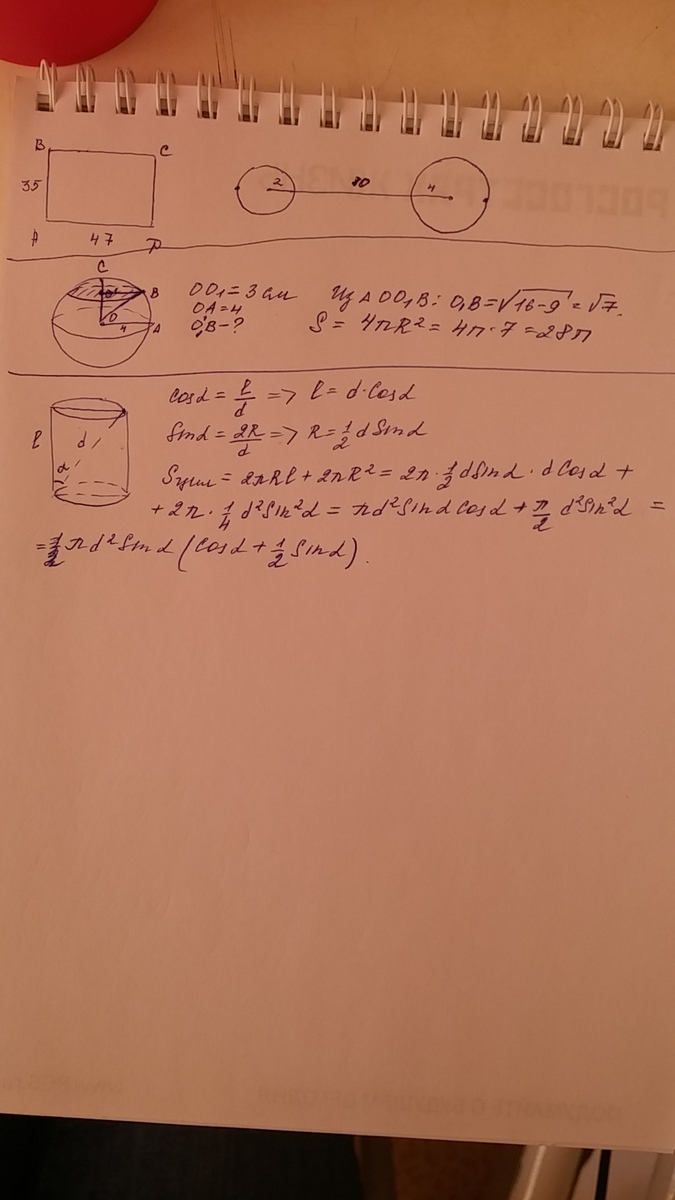 B C
35
A 47 D
2 80 4
C
O₁ B
O
4 A
OO₁ = 3 см
OA = 4
O₁B - ?
Из △ OO₁B: O₁B = √16-9 = √7.
S = 4πR² = 4π·7 = 28π
l
d
α
cosα = l/d => l = d·cosα
sinα = 2R/d => R = 1/2 d sinα
Sцил = 2πRl + 2πR² = 2π·1/2 d sinα · d cosα +
+ 2π · 1/4 d² sin²α = πd² sinα cosα + π/2 d² sin²α =
= πd² sinα (cosα + 1/2 sinα).